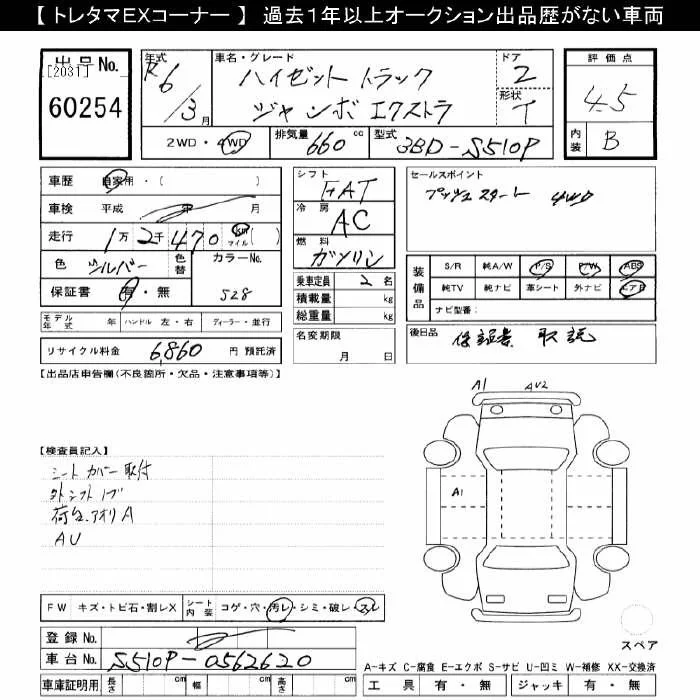 【 トレタマEXコーナー 】 過去1年以上オークション出品歴がない車両
出品No.
[2031]
60254
年式 R6/3月
車名・グレード
ハイゼット トラック
ジャンボ エクストラ
ドア 2
形状 T
評価点
4.5
内装 B
2WD・4WD 排気量 660 cc 型式 3BD-S510P
車歴 自家用・( )
車検 平成 年 月
走行 1万2千470 km マイル ( )
色 シルバー 色替 カラーNo. S28
保証書 有・無
シフト FAT
冷房 AC
燃料 ガソリン
乗車定員 2 名
積載量 kg
総重量 kg
セールスポイント
プッシュスタート 4WD
装備品 S/R 純A/W P/S P/W ABS
純TV 純ナビ 革シート 外ナビ エアB
ナビ型番:
モデル年式 年 ハンドル 左・右 ディーラー・並行
リサイクル料金 6,860 円 預託済
名変期限 月 日
後日品 保証書 取説
【出品店申告欄(不良箇所・欠品・注意事項等)】
【検査員記入】
シートカバー取付
荷台、アオリA
AU
A1 AU2
A1
FW キズ・トビ石・割レX シート内装 コゲ・穴・汚レ・シミ・破レ・スレ
登録No.
車台No. S510P-0562620
車庫証明用 長さ cm 幅 cm 高さ cm
スペア
A-キズ C-腐食 E-エクボ S-サビ U-凹ミ W-補修 XX-交換済
工具 有・無 ジャッキ 有・無